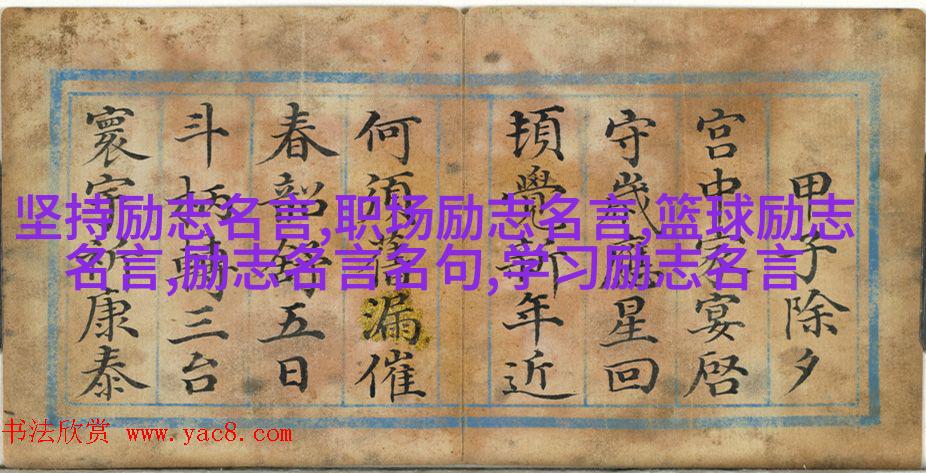 甲子除夕
宫中家宴啓
守歲星回
頓覺新年近
何須漏催
春韶五日
斗柄轉三台
寰宇新康泰
坚持励志名言,职场励志名言,篮球励志
名言,励志名言名句,学习励志名言
书法欣赏 www.yac8.com